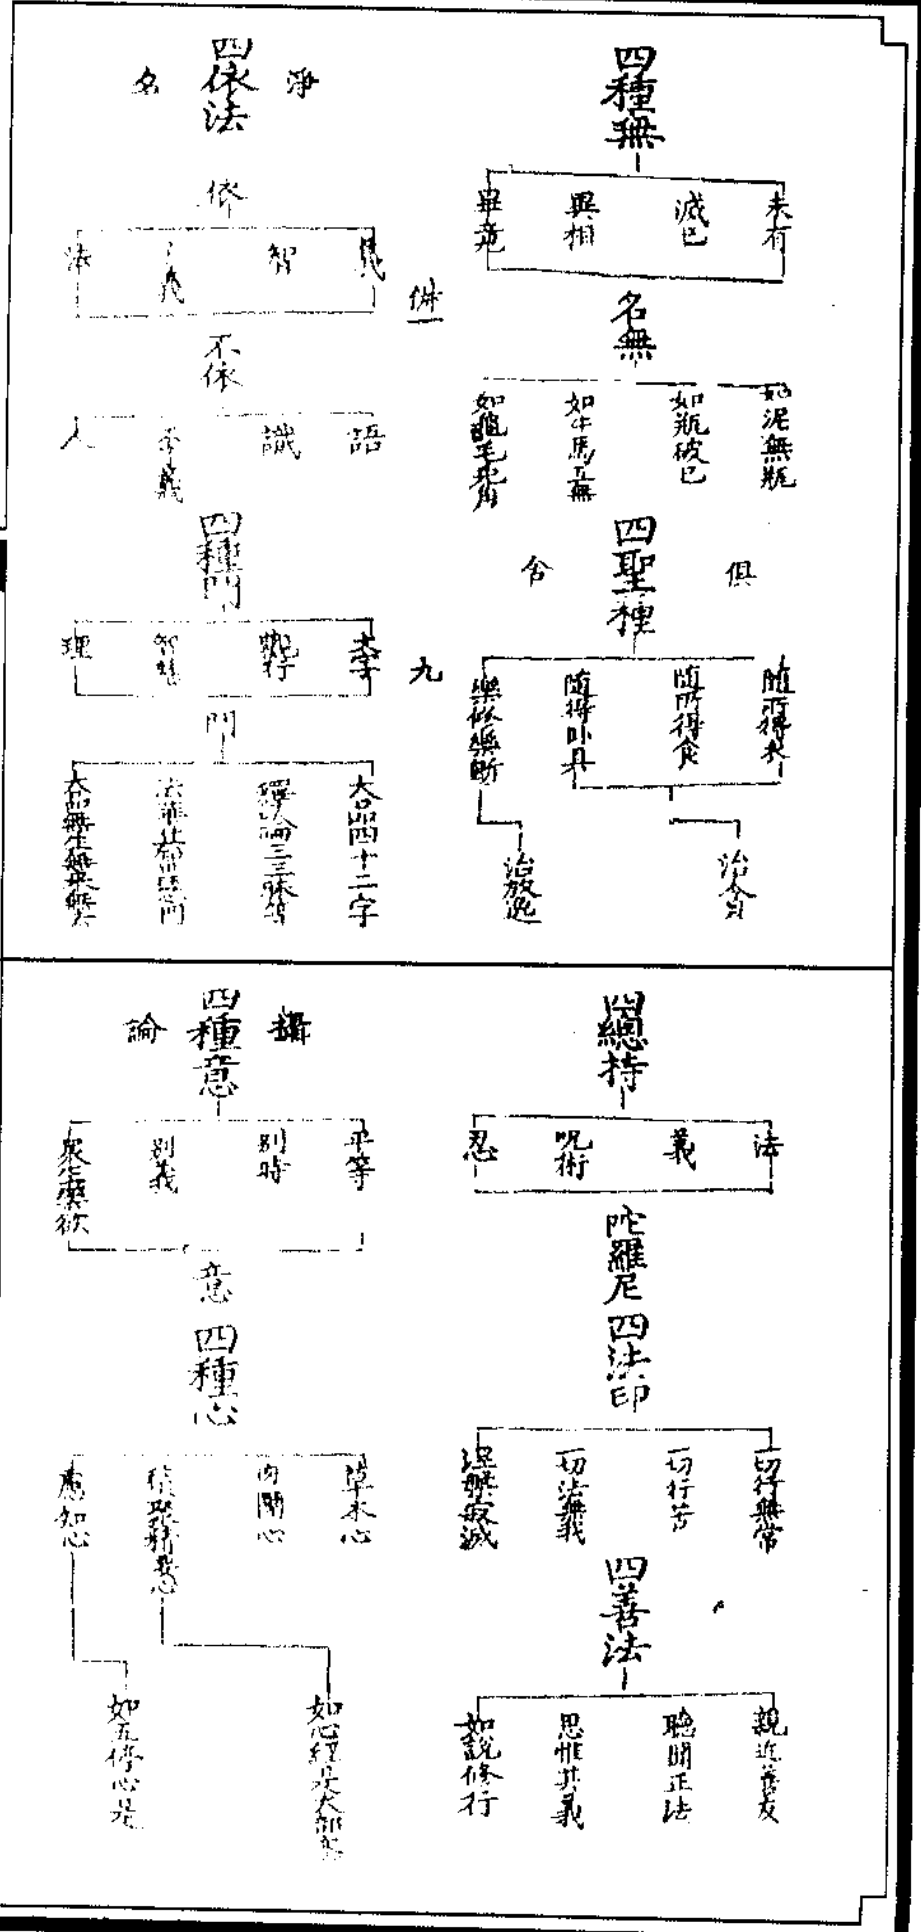 四種無
未有
滅已
異相
畢竟
名無
如泥無瓶
如瓶破已
如牛馬互無
如龜毛兔角
俱
四聖種
舍
隨所得衣
隨所得食
隨得卧具
樂修樂斷
治貪
治放逸
九
淨
四依法
名
依
義
智
了義
法
不依
語
識
不了義
人
四種門
文字
觀行
智慧
理
門
大品四十二字
釋論三三昧等
大品無生無來無去
四總持
法
義
呪術
忍
陀羅尼
四法印
一切行無常
一切行苦
一切法無我
涅槃寂滅
四善法
親近善友
聽聞正法
思惟其義
如說修行
攝
四種意
論
平等
別時
別義
眾生樂欲
意
四種心
草木心
肉團心
積聚精要心
慮知心
如心經是大部
如五停心是